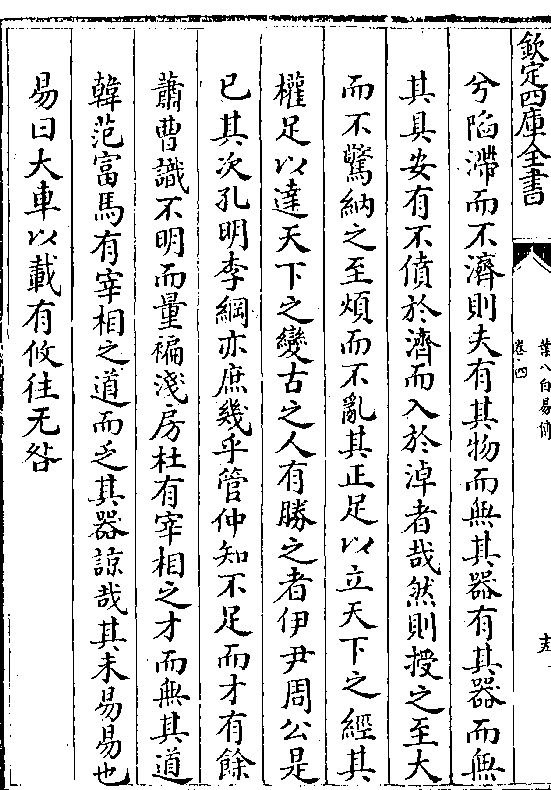 欽定四庫全書
葉八白易傳
卷四
十五
兮陷滯而不濟則夫有其物而無其器有其器而無
其具安有不僨於濟而入於淖者哉然則授之至大
而不驚納之至煩而不亂其正足以立天下之經其
權足以達天下之變古之人有勝之者伊尹周公是
已其次孔明李綱亦庶幾乎管仲知不足而才有餘
蕭曹識不明而量褊淺房杜有宰相之才而無其道
韓范富馬有宰相之道而乏其器諒哉其未易易也
易曰大車以載有攸往无咎